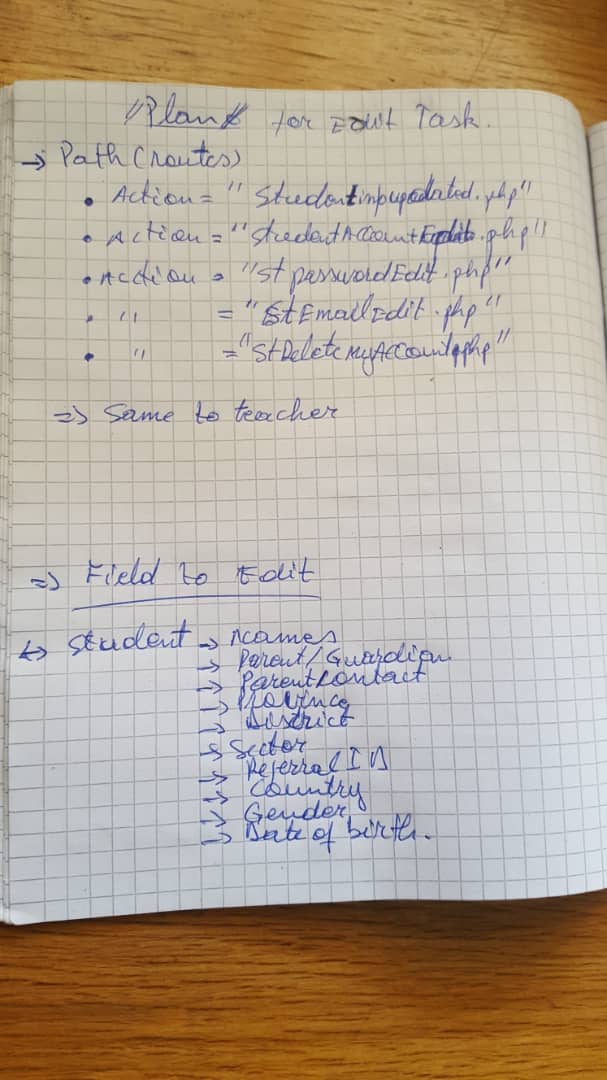 Plan for Edit Task.
→ Path (routes)
• Action = "Studentinpupdated.php"
• Action = "StudentAccountEdit.php"
• Action = "StpasswordEdit.php"
• " = "StEmailEdit.php"
• " = "StDeleteMyAccount.php"
=> Same to teacher
=> Field to Edit
↔ Student → Names
→ Parent/Guardian
→ ParentContact
→ Province
→ District
→ Sector
→ Referral ID
→ Country
→ Gender
→ Date of birth.